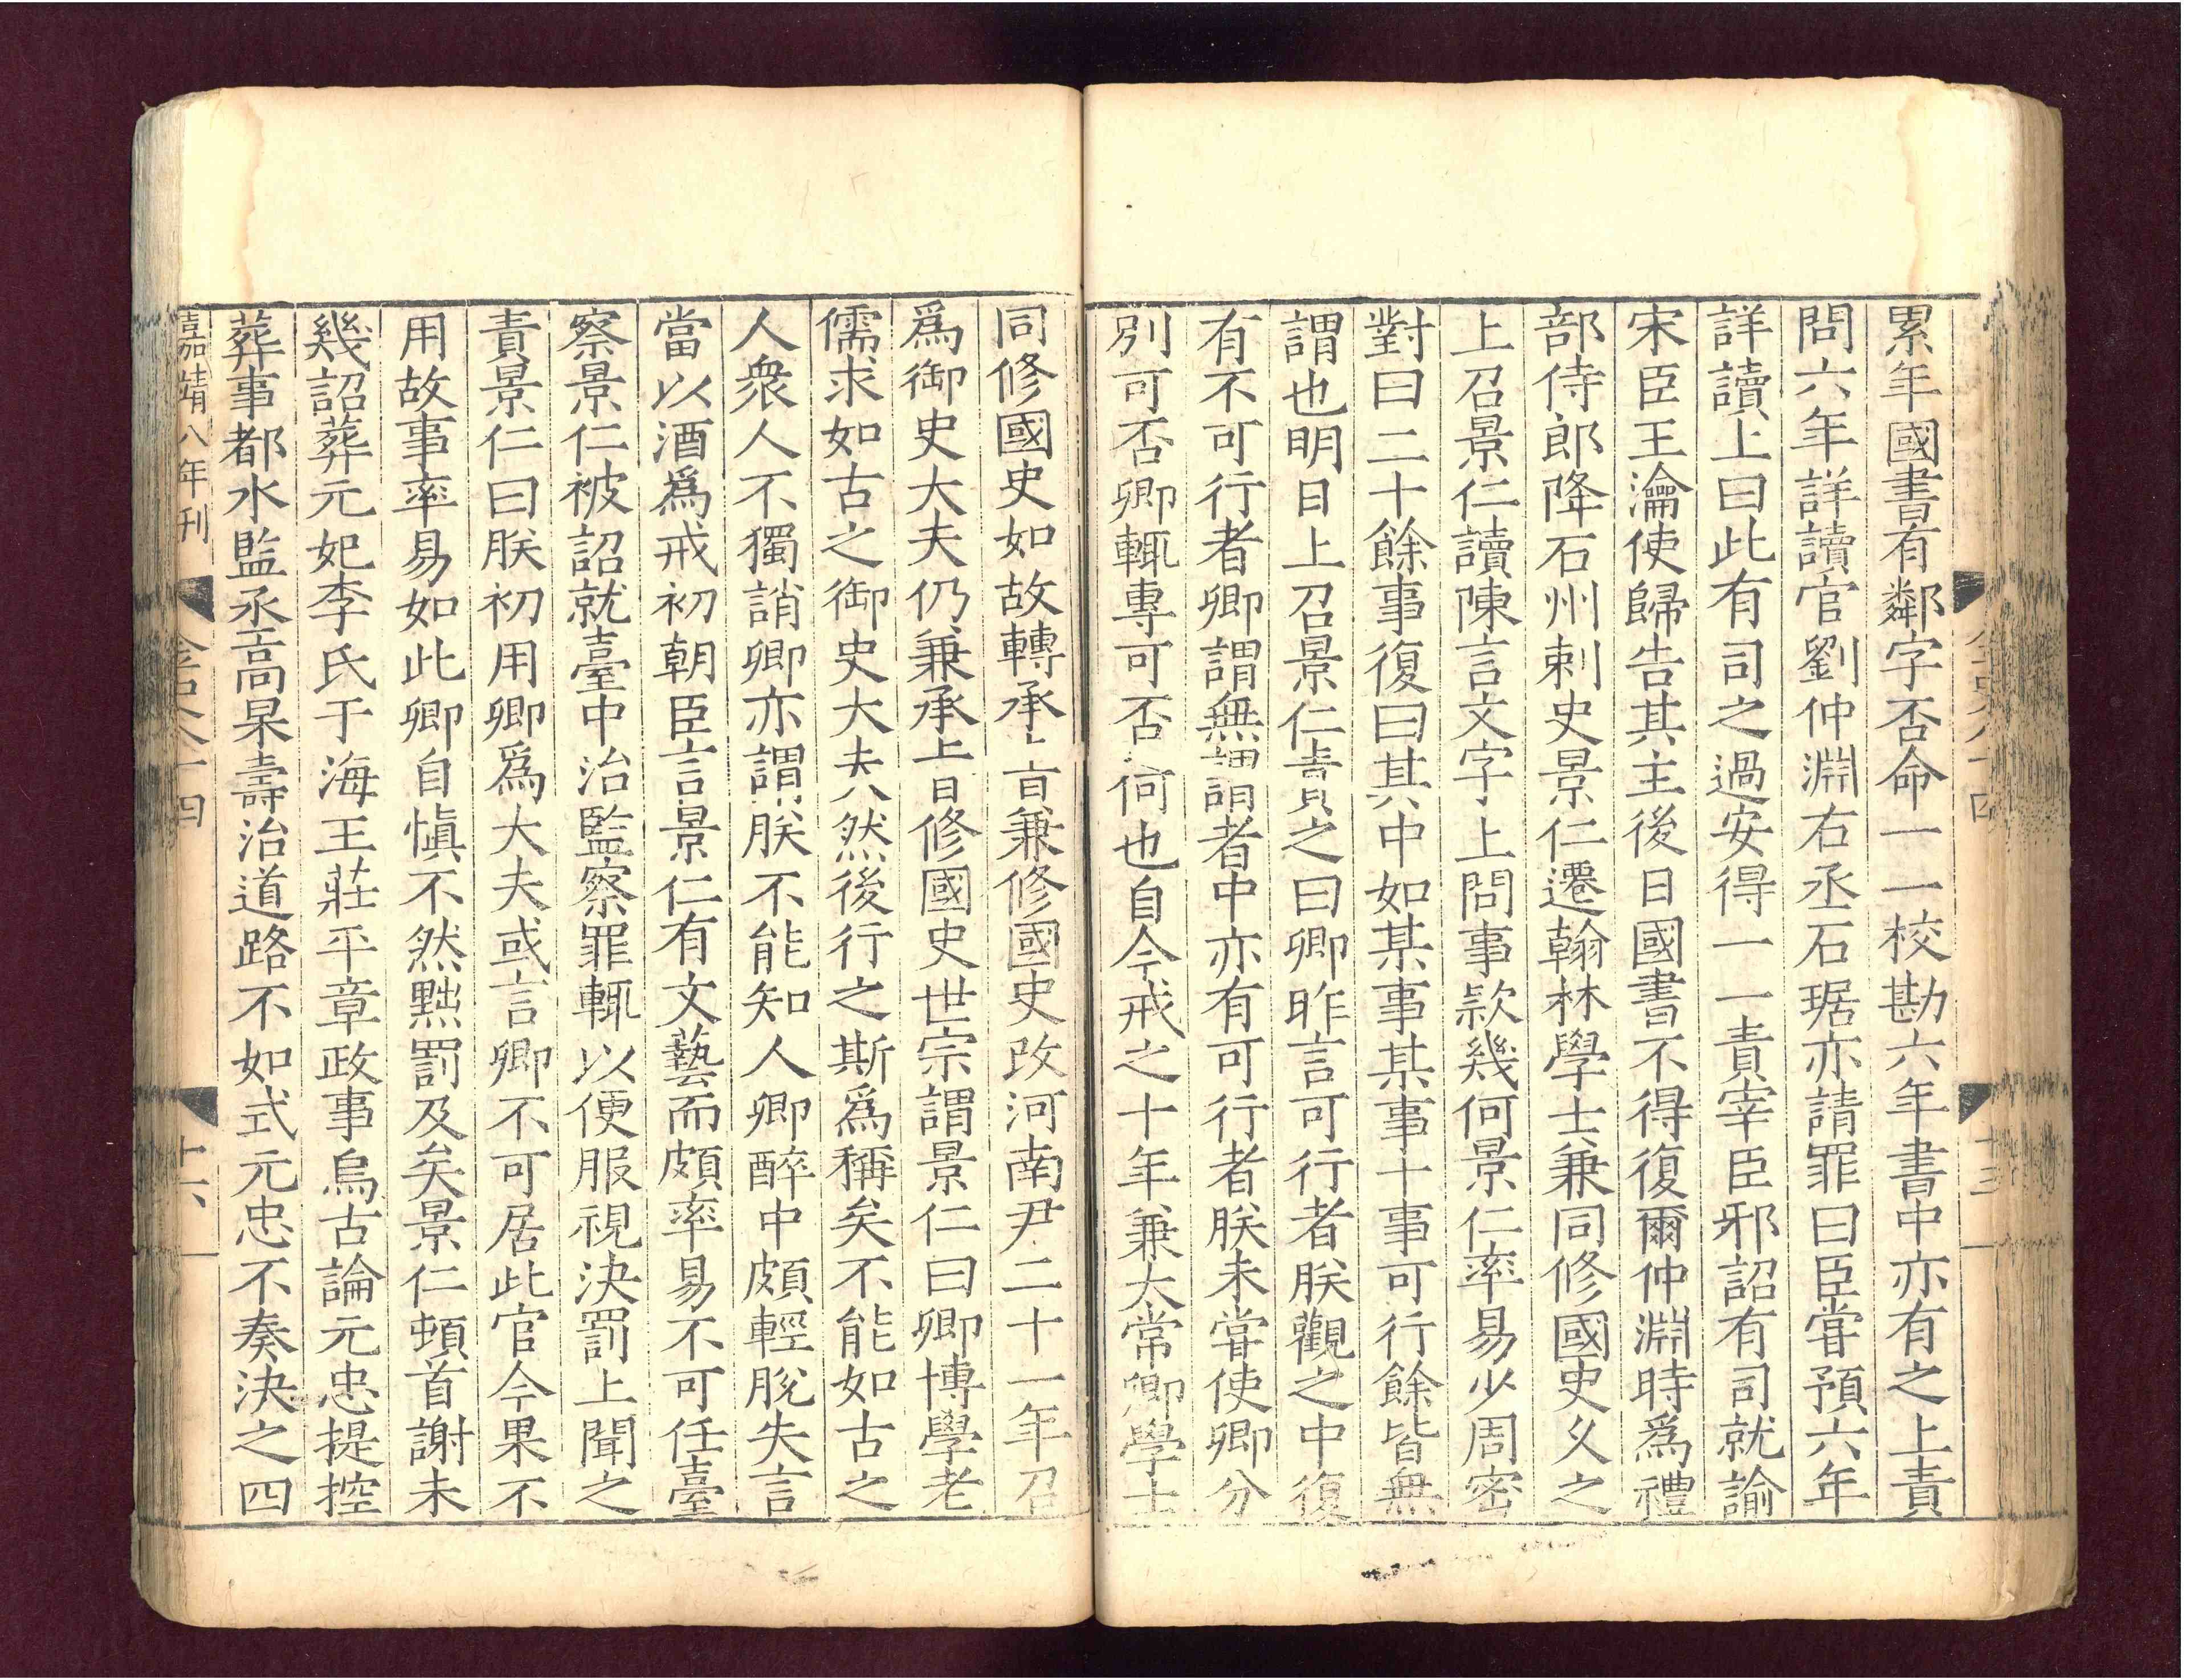 累年國書有鄰字否命一一校勘六年書中亦有之上責
問六年詳讀官劉仲淵右丞石琚亦請罪曰臣嘗預六年
詳讀上曰此有司之過安得一一責宰臣邪詔有司就諭
宋臣王瀹使歸告其主後日國書不得復爾仲淵時爲禮
部侍郎降石州刺史景仁遷翰林學士兼同修國史久之
上召景仁讀陳言文字上問事款幾何景仁率易少周密
對曰二十餘事復曰其中如某事某事十事可行餘皆無
謂也明日上召景仁責之曰卿昨言可行者朕觀之中復
有不可行者卿謂無謂者中亦有可行者朕未嘗使卿分
別可否卿輒專可否何也自今戒之十年兼大常卿學士
同修國史如故轉承上旨兼修國史改河南尹二十一年召
爲御史大夫仍兼承上日修國史世宗謂景仁曰卿博學老
儒求如古之御史大夫八然後行之斯爲稱矣不能如古之
人衆人不獨誚卿亦謂朕不能知人卿醉中頗輕脫失言
當以酒爲戒初朝臣言景仁有文藝而頗率易不可任臺
察景仁被詔就臺中治監察罪輒以便服視決罰上聞之
責景仁曰朕初用卿爲大夫或言卿不可居此官今果不
用故事率易如此卿自愼不然黜罰及矣景仁頓首謝未
幾詔葬元妃李氏于海王莊平章政事烏古論元忠提控
葬事都水監丞高杲壽治道路不如式元忠不奏決之四
嘉靖八年刊